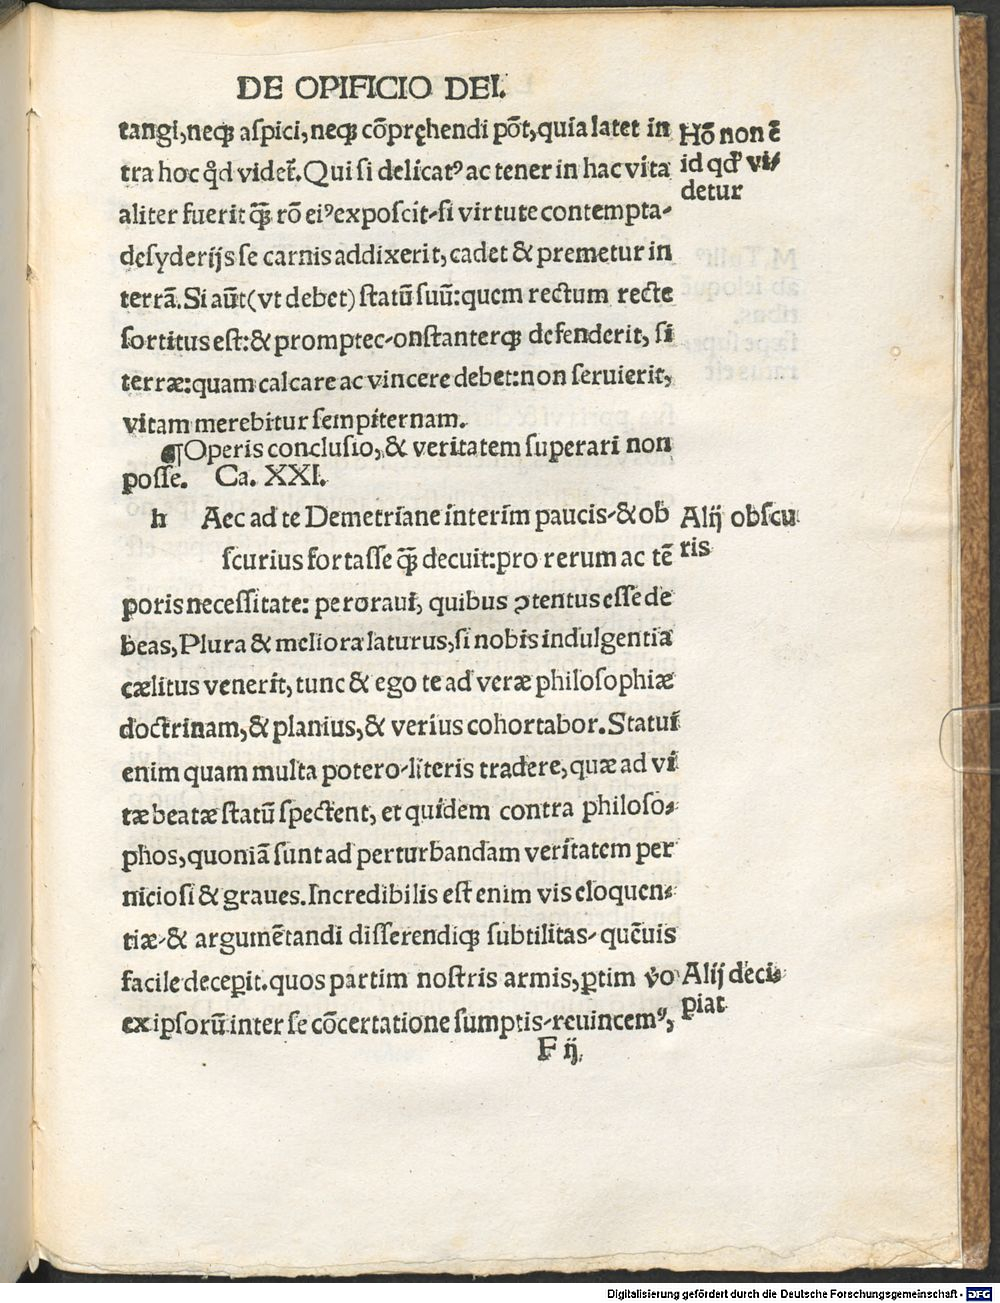 DE OPIFICIO DEI.
tangi,neqꝫ aſpici,neqꝫ cõpręhendi põt,quia latet in
tra hoc qd̉ videt᷑.Qui ſi delicatꝰ ac tener in hac vita
aliter fuerit ꝗ̃ꝫ rõ eiꝰ expoſcit-ſi virtute contempta-
deſyderijs ſe carnis addixerit, cadet & premetur in
terrã. Si aũt(vt debet) ſtatũ ſuũ:quem rectum recte
ſortitus eſt:& promptec-onſtanterqꝫ defenderit, ſi
terræ:quam calcare ac vincere debet:non ſeruierit,
vitam merebitur ſempiternam.
Hõ non ẽ
id qd̉ vi⸗
detur
¶Operis concluſio,& veritatem ſuperari non
poſſe. Ca. XXI.
h Aec ad te Demetriane interim paucis-& ob
ſcurius fortaſſe ꝗ̃ꝫ decuit:pro rerum ac tẽ
poris neceſſitate: peroraui, quibus ↄtentus eſſe de
beas,Plura & meliora laturus,ſi nobis indulgentia
cælitus venerit, tunc & ego te ad veræ philoſophiæ
doctrinam,& planius,& verius cohortabor.Statui
enim quam multa potero-literis tradere, quæ ad vi
tæ beatæ ſtatũ ſpectent, et quidem contra philoſo⸗
phos,quoniã ſunt ad perturbandam veritatem per
nicioſi & graues.Incredibilis eſt enim vis eloquen⸗
tiæ-& argumẽtandi diſſerendiqꝫ ſubtilitas-quẽuis
facile deceꝑit.quos partim noſtris armis,ꝑtim v̉o
ex ipſorũ inter ſe cõcertatione ſumptis-reuincemꝰ,
Alij obſcu
ris
Alij deci⸗
piat
F ij.
Digitalisierung gefördert durch die Deutsche Forschungsgemeinschaft - DFG